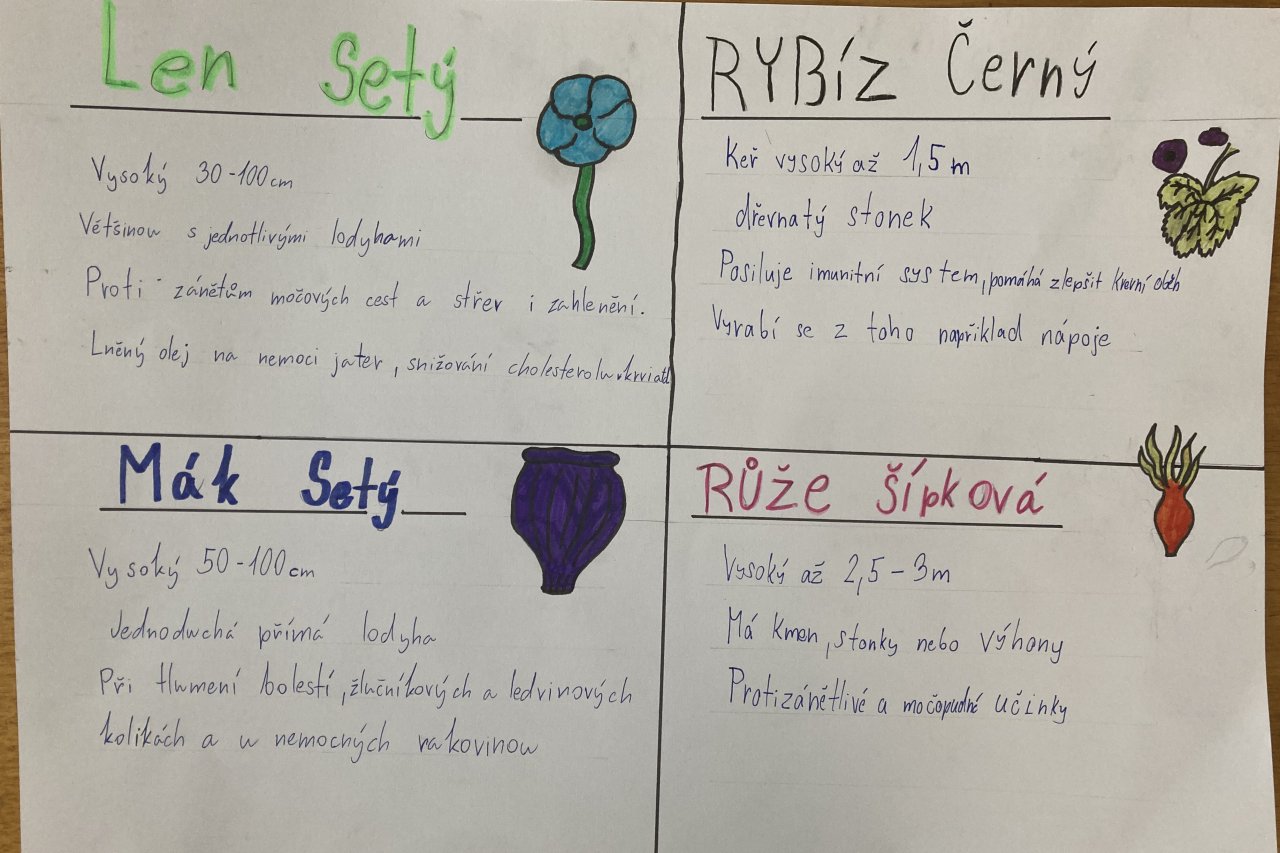 Len Setý
Vysoký 30-100cm
Většinou s jednotlivými lodyhami
Proti zánětům močových cest a střev i zahlenění.
Lněný olej na nemoci jater, snižování cholesterolu v krvi
RYBíZ Černý
Keř vysoký až 1,5 m
dřevnatý stonek
Posiluje imunitní system, pomáhá zlepšit krevní oběh
Vyrabí se z toho například nápoje
Mák Setý
Vysoký 50-100cm
Jednoduchá přímá lodyha
Při tlumení bolestí, žlučníkových a ledvinových
kolikách a u nemocných rakovinou
RŮŽE šípková
Vysoký až 2,5-3m
Má kmen, stonky nebo výhony
Protizánětlivé a močopudné účinky